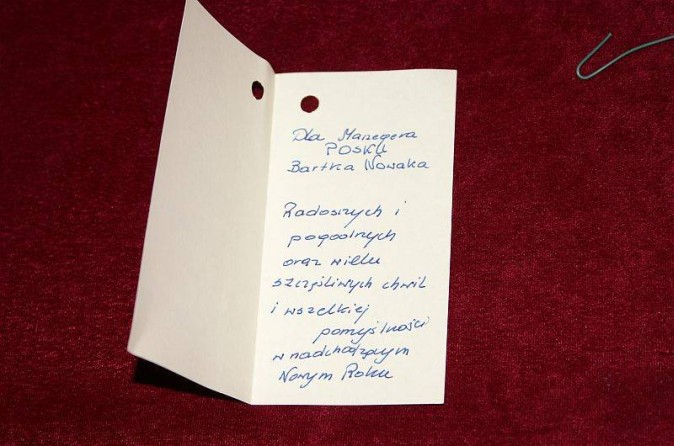 Dla Manegera
POSKu
Bartka Nowaka
Radosnych i
pogodnych
oraz wielu
szczęśliwych chwil
i wszelkiej
pomyślności
w nadchodzącym
Nowym Roku